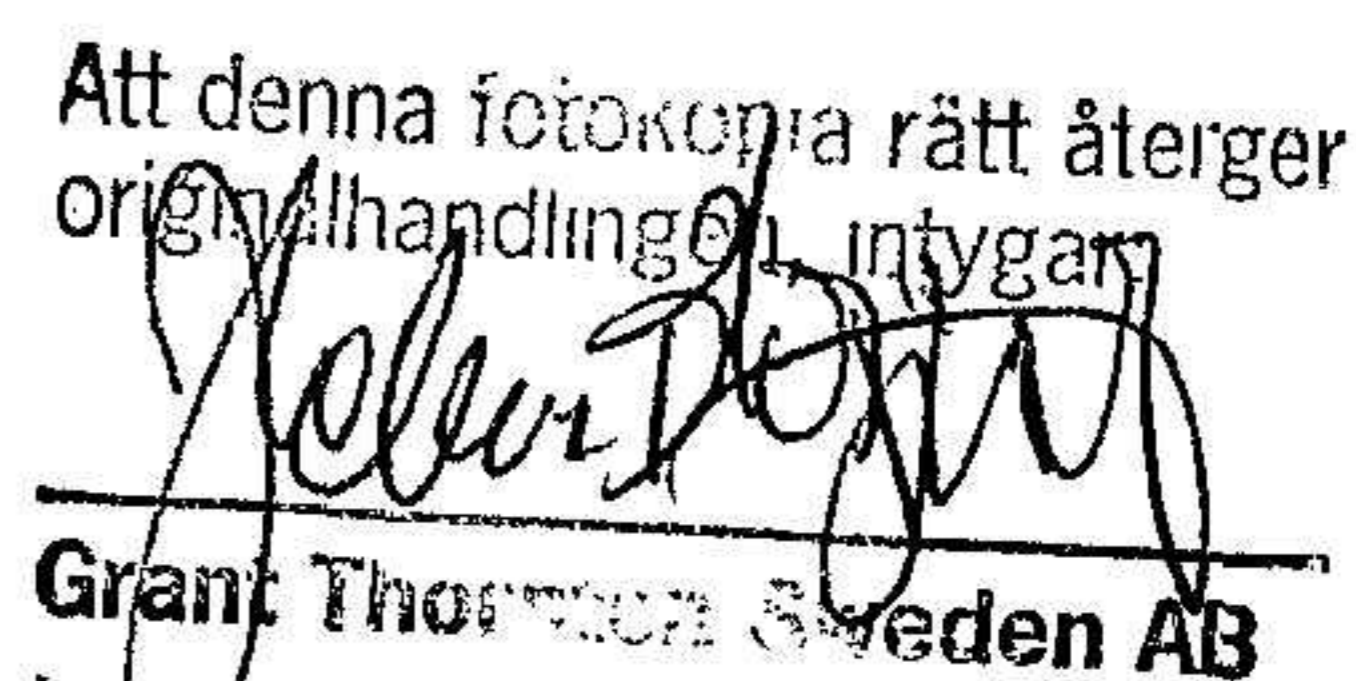 Att denna fotokopia rätt återger
originalhandlingen, intygar:
Grant Thornton Sweden AB